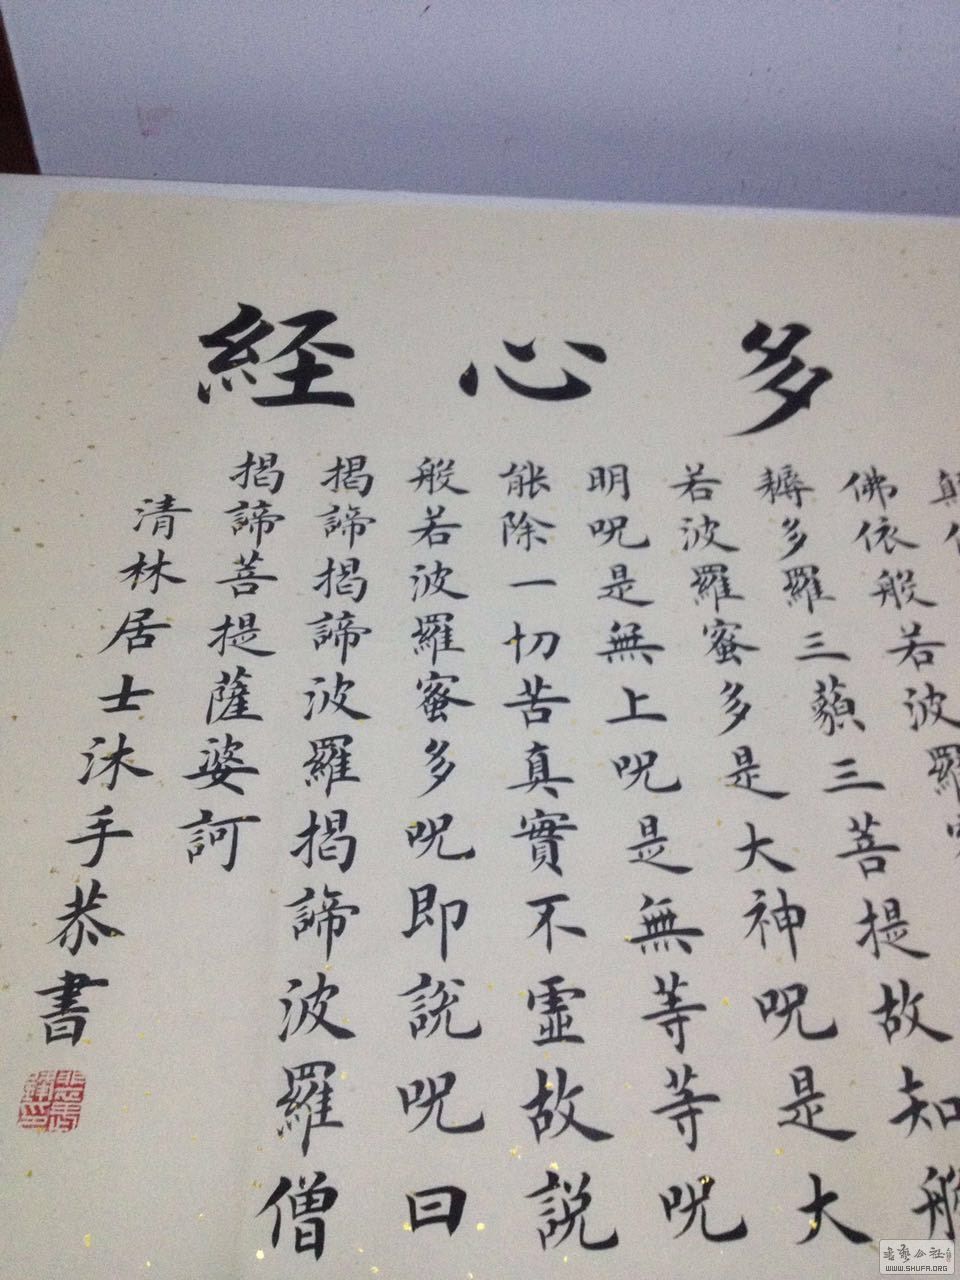 多心経
佛依般若波羅
耨多羅三藐三菩提故知般
若波羅蜜多是大神呪是大
明呪是無上呪是無等等呪
能除一切苦真實不虛故説
般若波羅蜜多呪即說呪曰
揭諦揭諦波羅揭諦波羅僧
揭諦菩提薩婆訶
清林居士沐手恭書
WWW.SHUFA.ORG